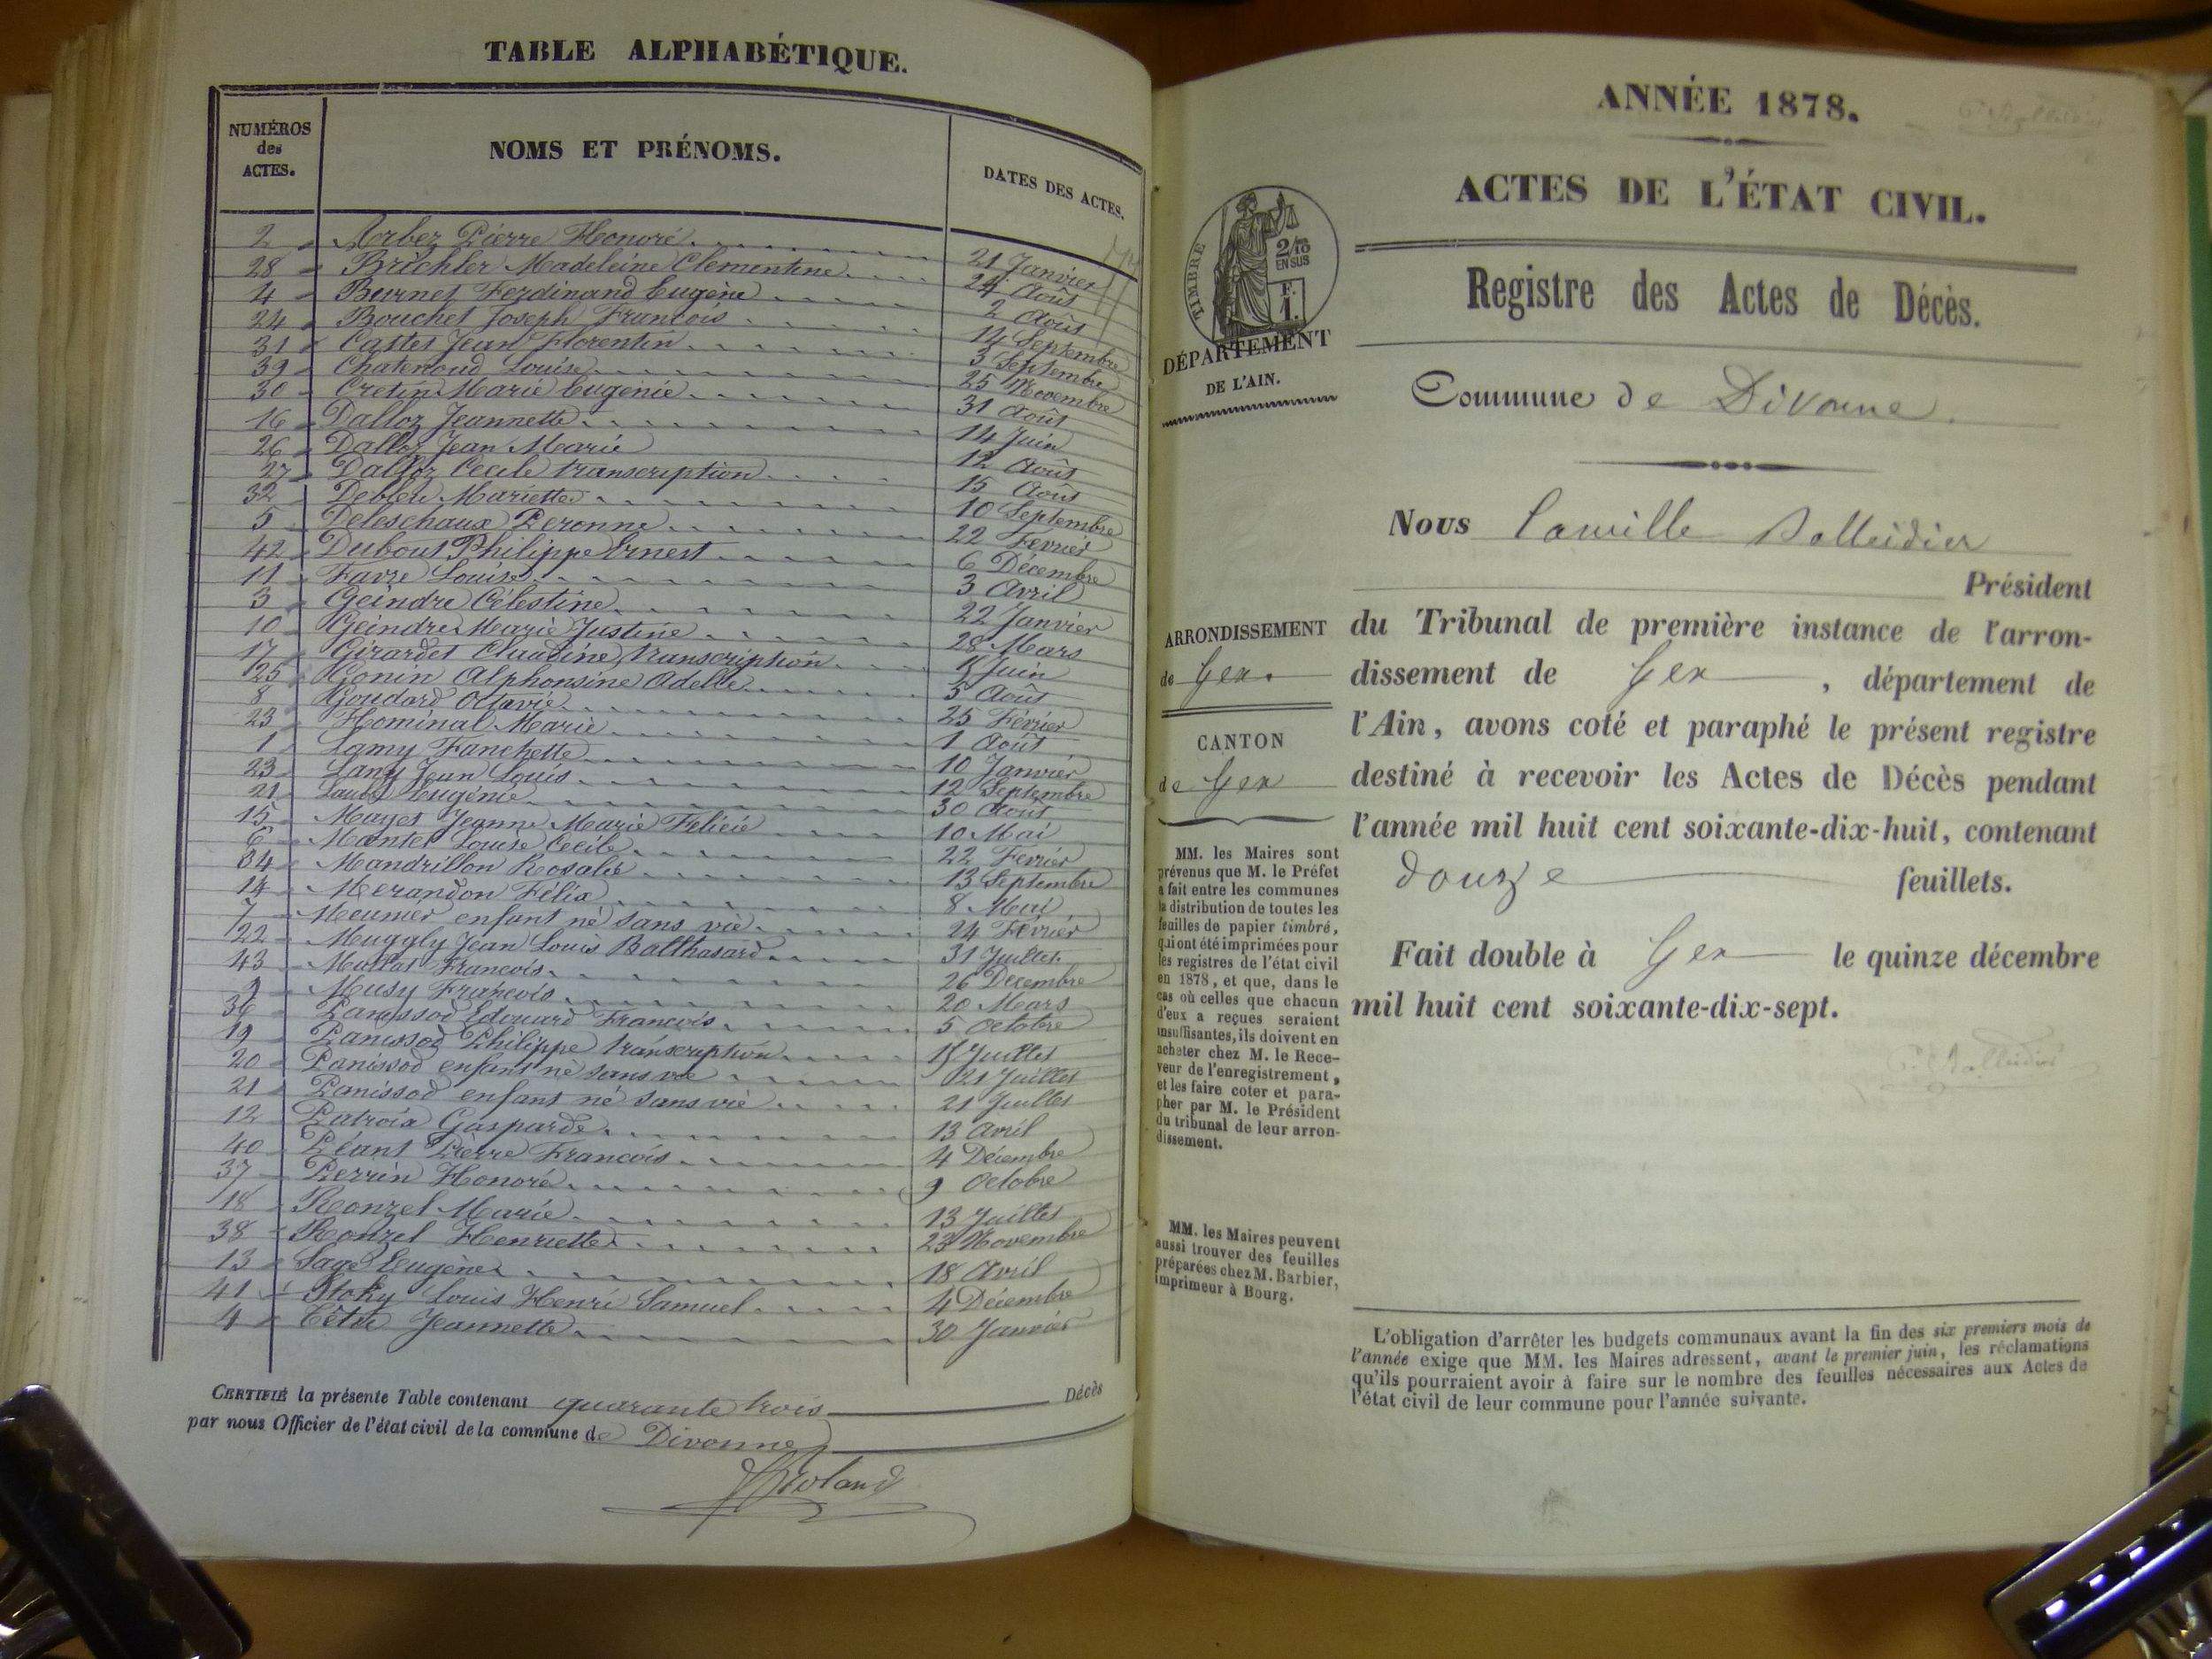 TABLE ALPHABÉTIQUE.
NUMÉROS des ACTES.
NOMS ET PRÉNOMS.
DATES DES ACTES.
2 Arbez Pierre Honoré 21 Janvier
28 Brichler Madeleine Clementine 24 Août
4 Ferdinand Eugène 2 Août
24 Bouchet Joseph François 14 Septembre
31 Castes Jean Florentin 3 Septembre
39 Chatenoud Louise 25 Novembre
30 Cretin Marie Eugenie 31 Août
16 Dalloz Jeannette 14 Juin
26 Dalloz Jean Marie 12 Août
27 Dalloz Cecile transcription 15 Août
32 Debleu Mariette 10 Septembre
5 Deleschaux Peronne 22 Fevrier
42 Dubout Philippe Ernest 6 Décembre
11 Favre Louise 3 Avril
3 Geindre Célestine 22 Janvier
10 Geindre Marie Justine 28 Mars
17 Girardet Claudine transcription Juin
25 Gonin Alphonsine Adelle 5 Août
8 Goudard Octavie 25 Février
23 Hominal Marie 1 Août
1 Lamy Fanchette 10 Janvier
23 Lany Jean Louis 12 Septembre
21 Eugénie 30 Août
15 Mayet Jeanne Marie Félicie 10 Mai
6 Mantel Louise Cecile 22 Fevrier
34 Mandrillon Rosalie 13 Septembre
14 Merandon Félix 8 Mai
7 Meunier enfant né sans vie 24 Février
22 Muggly Jean Louis Balthasard 31 Juillet
43 François 26 Décembre
9 Musy François 20 Mars
36 Panissod Edouard François 5 Octobre
19 Panissod Philippe transcription Juillet
20 Panissod enfant né sans vie 21 Juillet
21 Panissod enfant né sans vie 21 Juillet
12 Patroix Gasparde 13 Avril
40 Péant Pierre François 4 Décembre
37 Perrin Honoré 9 Octobre
18 Ronzel Marie 13 Juillet
38 Ronzel Henriette 23 Novembre
13 Sage Eugène 18 Avril
41 Stoky Louis Henri Samuel 4 Décembre
4 Jeannette 30 Janvier
CERTIFIÉ la présente Table contenant quarante trois Décès
par nous Officier de l'état civil de la commune de Divonne
ANNÉE 1878.
ACTES DE L'ÉTAT CIVIL.
TIMBRE
2/10
EN SUS
F.
1.
DÉPARTEMENT
DE L'AIN.
Registre des Actes de Décès.
Commune de Divonne.
ARRONDISSEMENT
de Gex.
CANTON
de Gex
MM. les Maires sont
prévenus que M. le Préfet
a fait entre les communes
la distribution de toutes les
feuilles de papier timbré,
qui ont été imprimées pour
les registres de l'état civil
en 1878, et que, dans le
cas où celles que chacun
d'eux a reçues seraient
insuffisantes, ils doivent en
acheter chez M. le Rece-
veur de l'enregistrement,
et les faire coter et para-
pher par M. le Président
du tribunal de leur arron-
dissement.
MM. les Maires peuvent
aussi trouver des feuilles
préparées chez M. Barbier,
imprimeur à Bourg.
Nous Camille
Président
du Tribunal de première instance de l'arron-
dissement de Gex, département de
l'Ain, avons coté et paraphé le présent registre
destiné à recevoir les Actes de Décès pendant
l'année mil huit cent soixante-dix-huit, contenant
douze feuillets.
Fait double à Gex le quinze décembre
mil huit cent soixante-dix-sept.
L'obligation d'arrêter les budgets communaux avant la fin des six premiers mois de
l'année exige que MM. les Maires adressent, avant le premier juin, les réclamations
qu'ils pourraient avoir à faire sur le nombre des feuilles nécessaires aux Actes de
l'état civil de leur commune pour l'année suivante.